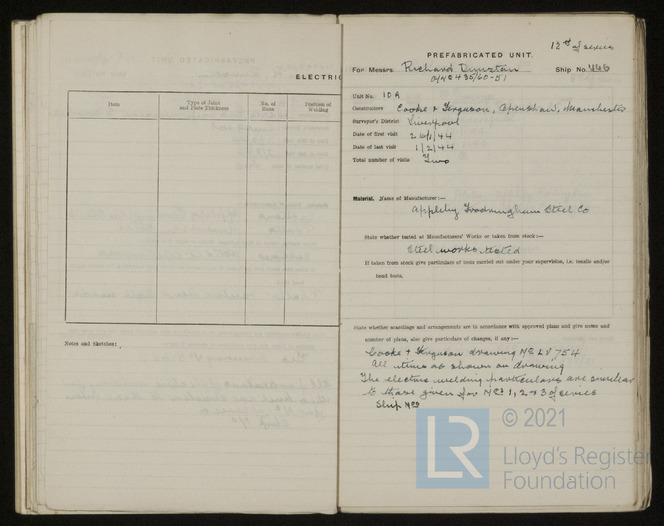 ELECTRIC
Item
Type of Joint
and Plate Thickness
No. of
Runs
Position of
Welding
Notes and Sketches:
12th of series
PREFABRICATED UNIT.
For Messrs. Richard Dunston Ship No. 446
435/60-51
Unit No. 10A
Constructors Cooke & Ferguson, Openshaw, Manchester
Surveyor's District Liverpool
Date of first visit /1/44
Date of last visit 1/2/44
Total number of visits Two
Material. Name of Manufacturer:—
Appleby Frodingham Steel Co
State whether tested at Manufacturers' Works or taken from stock:—
Steel works tested
If taken from stock give particulars of tests carried out under your supervision, i.e. tensile and/or
bend tests.
State whether scantlings and arrangements are in accordance with approved plans and give names and
number of plans, also give particulars of changes, if any:—
Cooke & Ferguson drawing No LV 754
All items as shown on drawing
The electric welding particulars are similar
to those given for Nos 1, 2 & 3 of series
Ship Nos
LR
© 2021
Lloyd's Register
Foundation